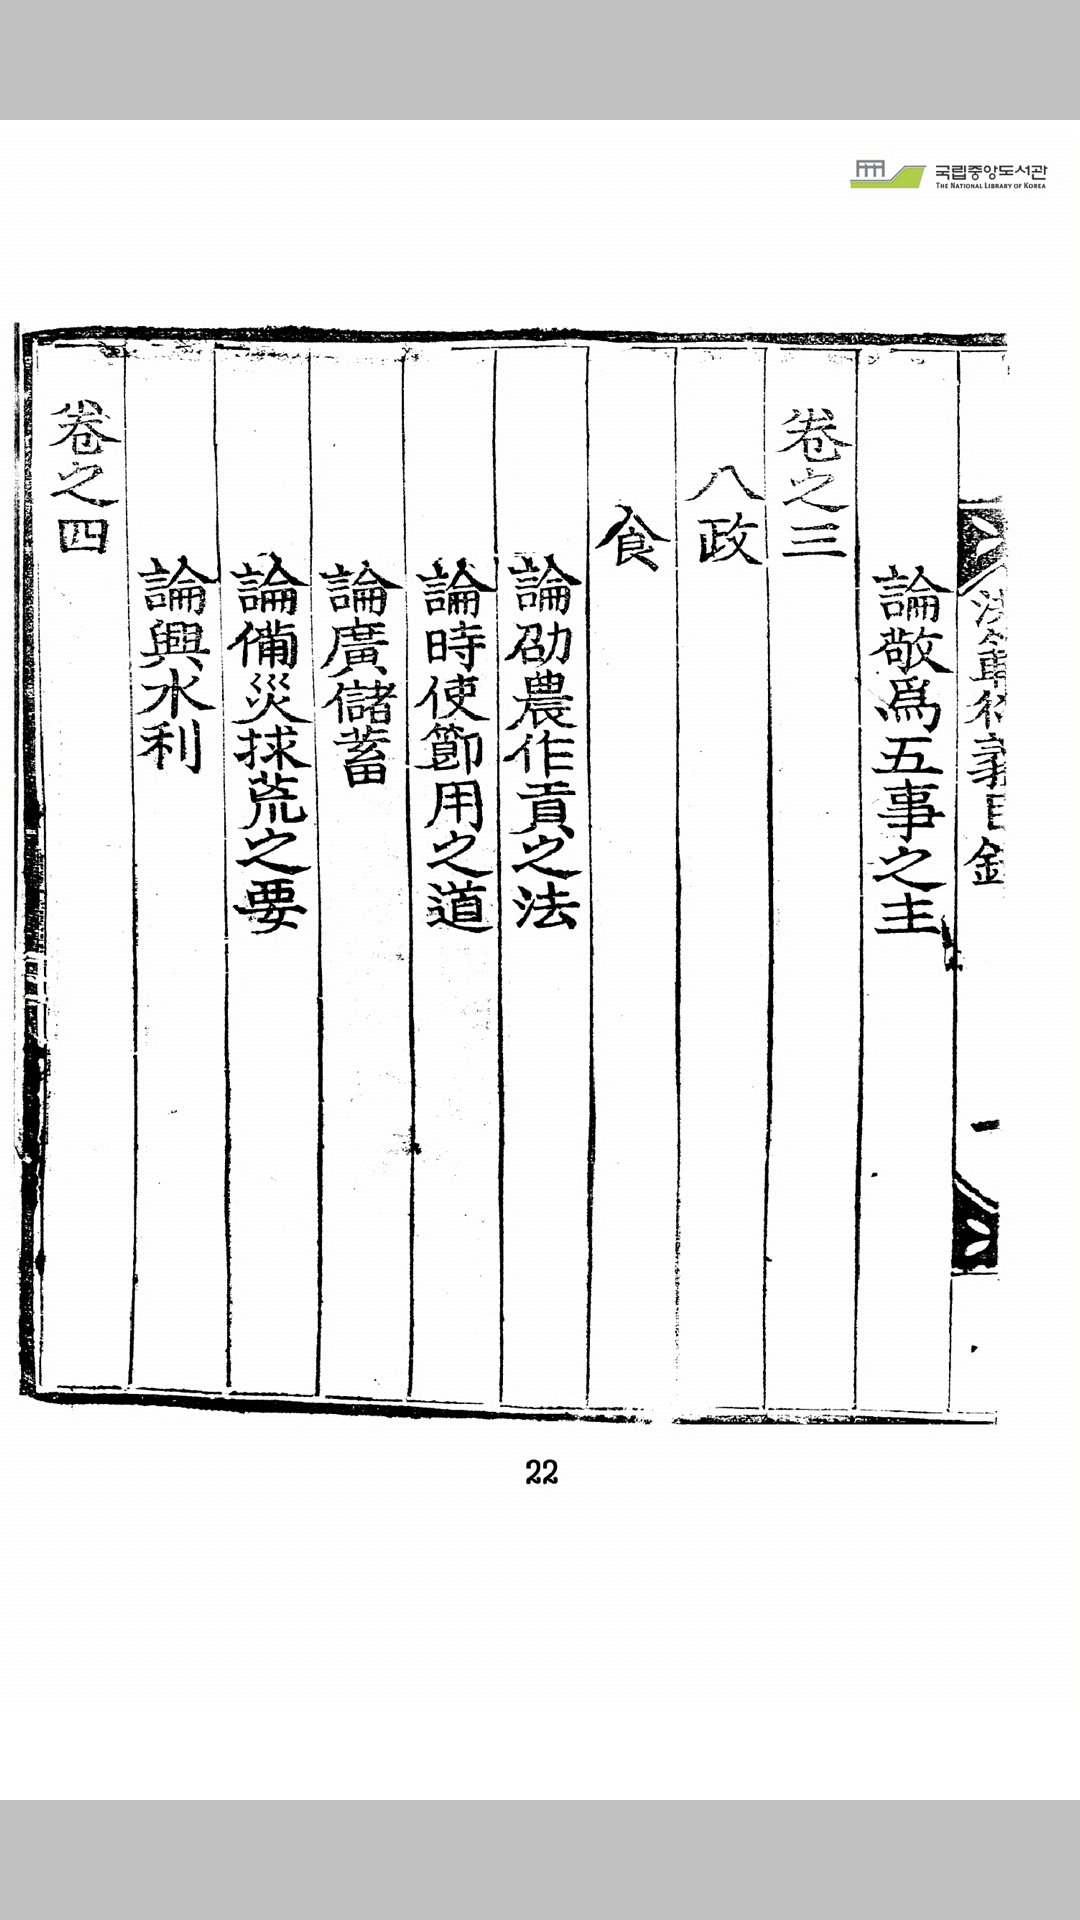 국립중앙도서관
THE NATIONAL LIBRARY OF KOREA
論敬爲五事之主
卷之三
八政
食
論劭農作貢之法
論時使節用之道
論廣儲蓄
論備災捄荒之要
論興水利
卷之四
義目錄
一
22